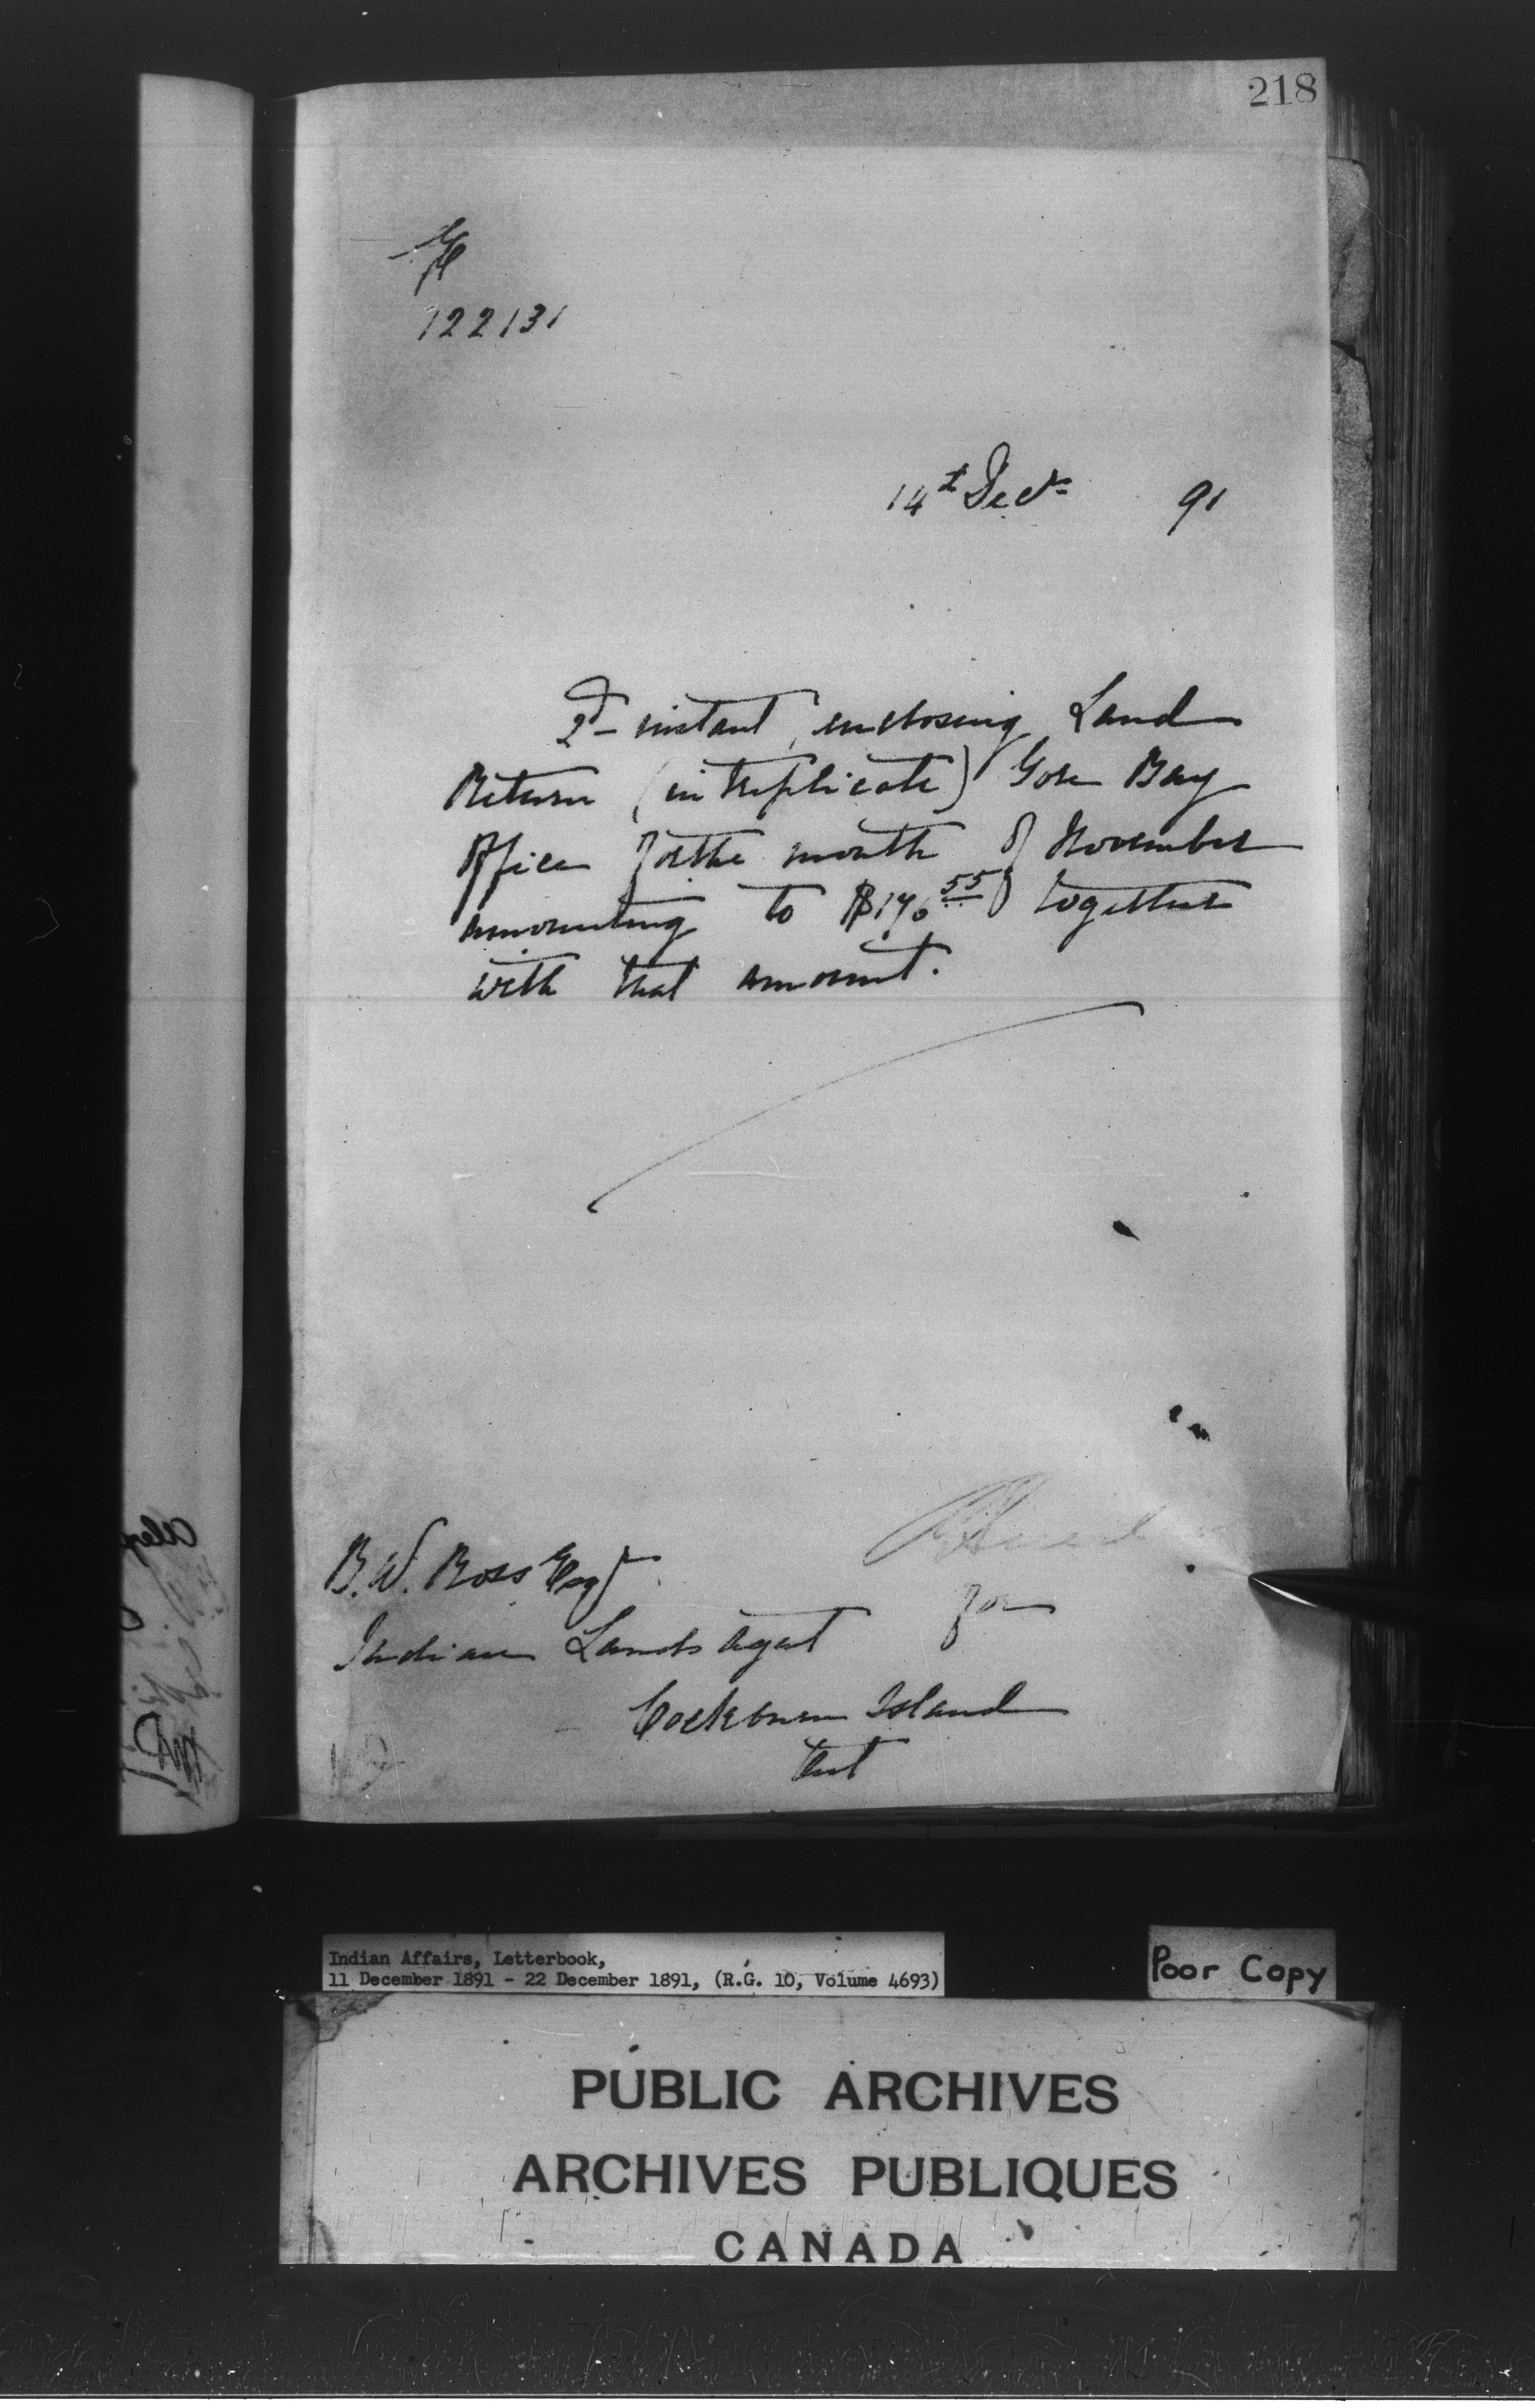 218
122131
14th Decr 91
2d instant, enclosing Land
Return (in triplicate) Gore Bay
Office for the month of November
amounting to $176.55 together
with that amount.
B. W. Ross Esqr
for
Indian Lands Agent
Cockburn Island
Ont
Indian Affairs, Letterbook,
11 December 1891 - 22 December 1891, (R.G. 10, Volume 4693)
Poor Copy
PUBLIC ARCHIVES
ARCHIVES PUBLIQUES
CANADA